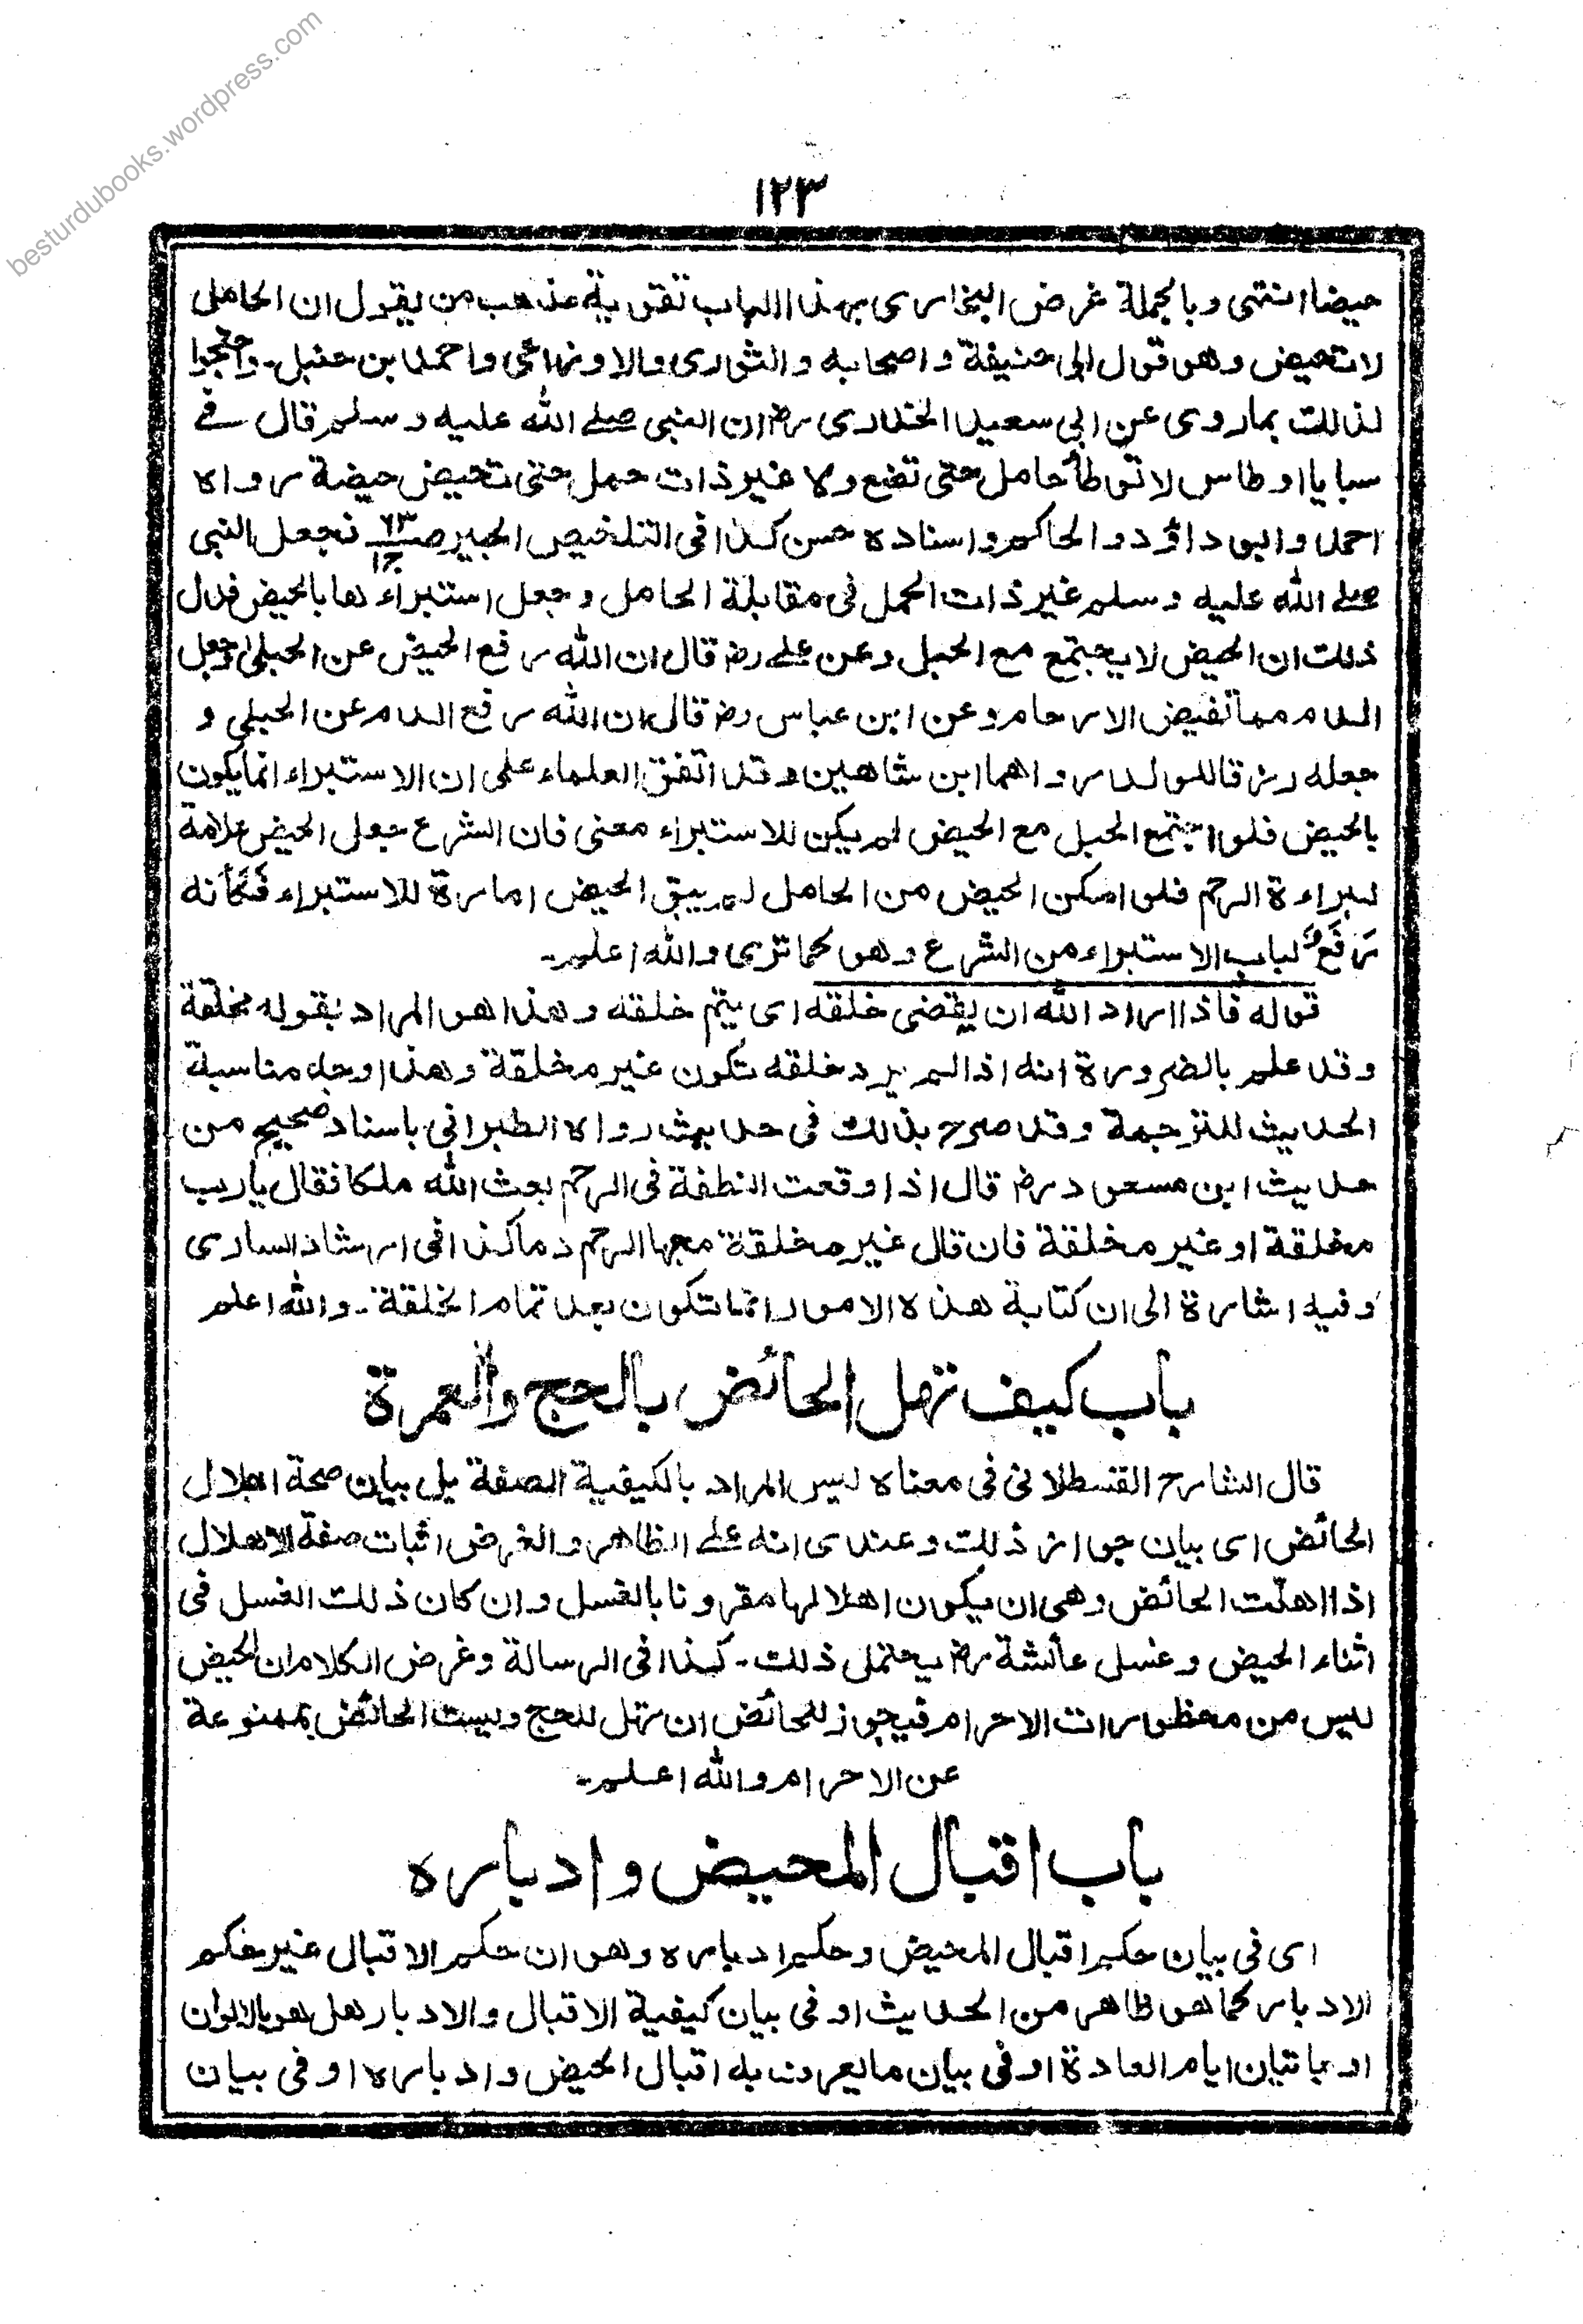 besturdubooks.wordpress.com
١٢٣
حيضا انتهى وبالجملة غرض البخارى بهذا الباب تقوية مذهب من يقول ان الحامل
لا تحيض وهو قول ابى حنيفة واصحابه والثورى والاوزاعى واحمد بن حنبل۔ واحتجوا
لذلك بما روى عن ابي سعيد الخدرى رض ان النبى صلے الله عليه وسلم قال فے
سبايا اوطاس لا توطأ حامل حتى تضع ولا غير ذات حمل حتى تحيض حيضة رواه
احمد وابو داؤد والحاكم واسناده حسن كذا فى التلخيص الحبير ص٦٣ ج١ فجعل النبى
صلے الله عليه وسلم غير ذات الحمل فى مقابلة الحامل وجعل استبراء ها بالحيض فدل
ذلك ان الحيض لا يجتمع مع الحبل وعن علے رض قال ان الله رفع الحيض عن الحبلى وجعل
الدم مما تغيض الارحام وعن ابن عباس رض قال ان الله رفع الدم عن الحبلى و
جعله رزقا للولد رواهما ابن شاهين وقد اتفق العلماء على ان الاستبراء انما يكون
بالحيض فلو اجتمع الحبل مع الحيض لم يكن للاستبراء معنى فان الشرع جعل الحيض علامة
لبراءة الرحم فلو امكن الحيض من الحامل لم يبق الحيض امارة للاستبراء فَكَأنه
رَفَعٌ لباب الاستبراء من الشرع وهو كما ترى والله اعلم۔
قوله فاذا اراد الله ان يقضى خلقه اى يتم خلقه وهذا هو المراد بقوله مخلّقة
وقد علم بالضرورة انه اذا لم يرد خلقه تكون غير مخلقة وهذا وجه مناسبة
الحديث للترجمة وقد صرح بذلك فى حديث رواه الطبرانى باسناد صحيح من
حديث ابن مسعود رض قال اذا وقعت النطفة فى الرحم بعث الله ملكا فقال يا رب
مخلقة او غير مخلقة فان قال غير مخلقة مجها الرحم دما كذا فى ارشاد السارى
وفيه اشارة الى ان كتابة هذه الامور انما تكون بعد تمام الخلقة۔ والله اعلم
باب كيف تهل الحائض بالحج والعمرة
قال الشارح القسطلانى فى معناه ليس المراد بالكيفية الصفة بل بيان صحة اهلال
الحائض اى بيان جواز ذلك وعندى انه علے الظاهر والغرض اثبات صفة الاهلال
اذا اهلّت الحائض وهى ان يكون اهلالها مقرونا بالغسل وان كان ذلك الغسل فى
اثناء الحيض وغسل عائشة رض يحتمل ذلك۔ كذا فى الرسالة وغرض الكلام ان الحيض
ليس من محظورات الاحرام فيجوز للحائض ان تهل للحج وليست الحائض بممنوعة
عن الاحرام والله اعلم۔
باب اقبال المحيض وادباره
اى فى بيان حكم اقبال المحيض وحكم ادباره وهو ان حكم الاقبال غير حكم
الادبار كما هو ظاهر من الحديث او فى بيان كيفية الاقبال والادبار هل هو بالالوان
او باتيان ايام العادة او فى بيان ما يعرف به اقبال الحيض وادباره او فى بيان